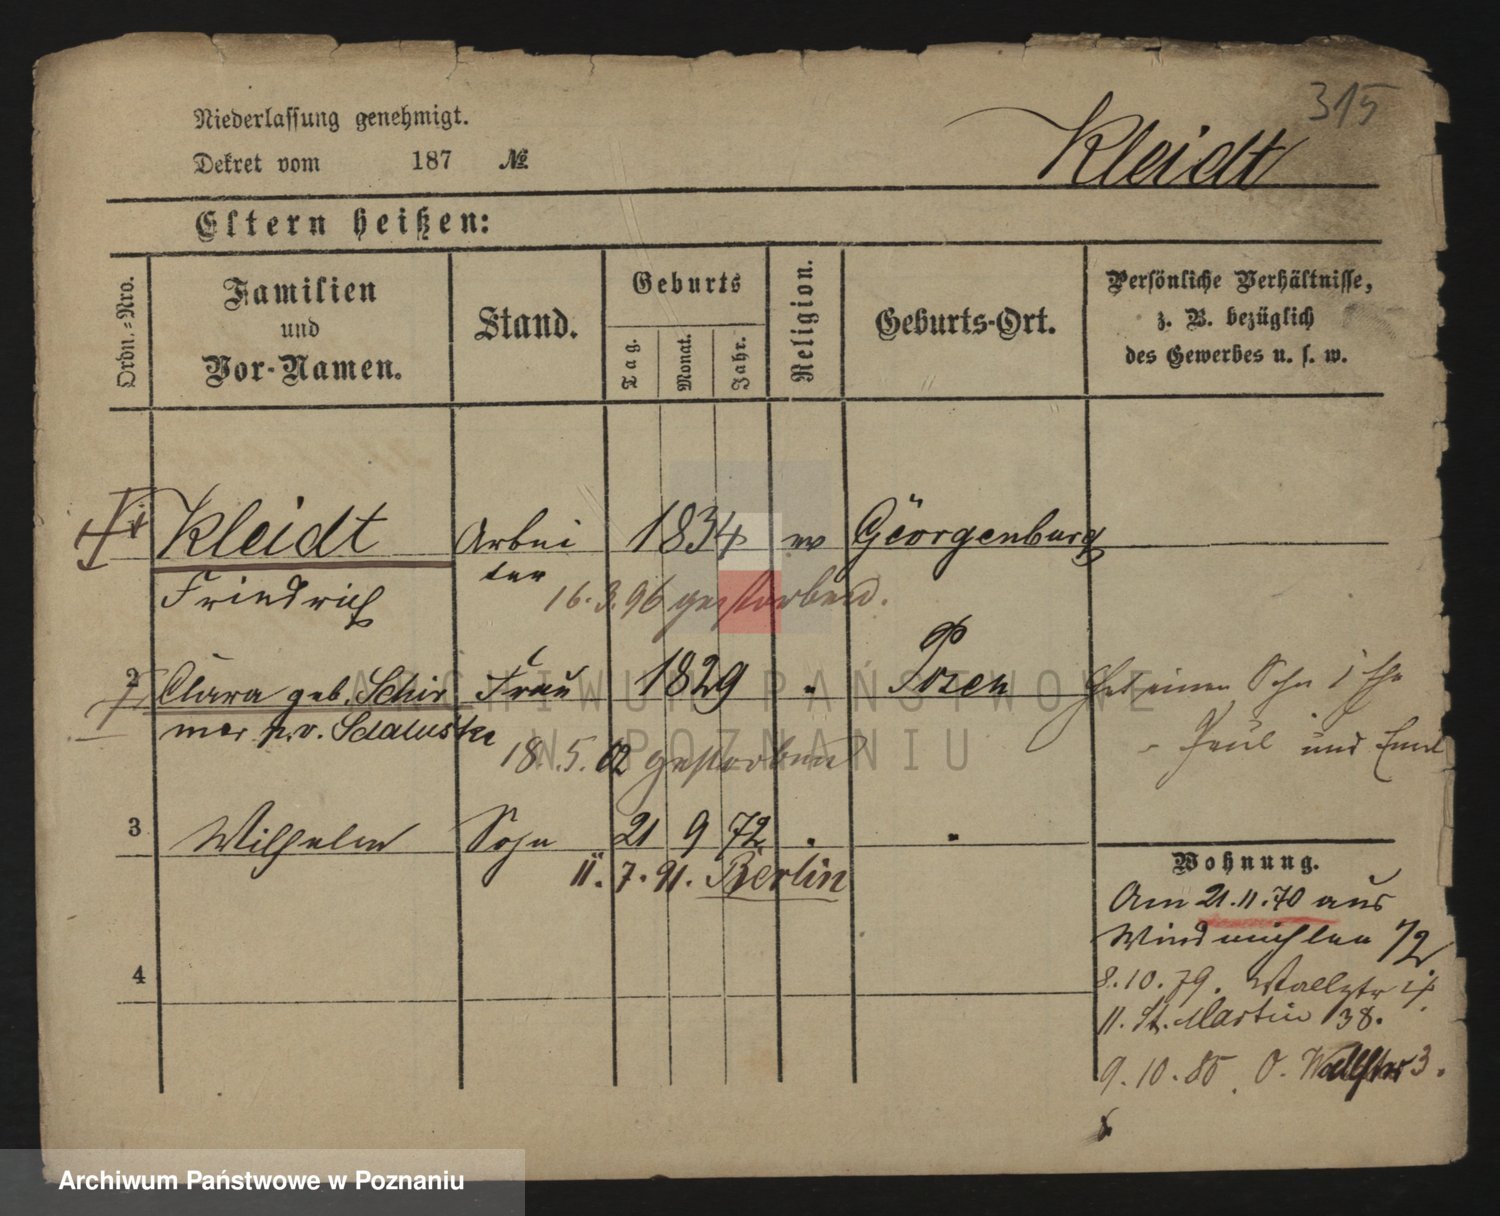 315
Niederlassung genehmigt.
Kleidt
Dekret vom 187 №
Eltern heißen:
Ordn.=Nro.
Familien
und
Vor-Namen.
Stand.
Geburts
Tag.
Monat.
Jahr.
Religion.
Geburts-Ort.
Persönliche Verhältnisse,
z. B. bezüglich
des Gewerbes u. s. w.
Kleidt Arbei 1834 ev Georgenburg
Friedrich ter
16.3.96 gestorben.
2 Clara geb. Schir Frau 1829 " Posen
mer
18.5.02 gestorben
Hat einen Sohn
Paul und
3 Wilhelm Sohn 21 9 72 " "
11.7.91. Berlin
Wohnung.
Am 21.11.70 aus
Windmühlen 72
8.10.79. Wallstr
11. St. Martin 38.
9.10.85. O. Wallstr 3.
4
ARCHIWUM PAŃSTWOWE
W POZNANIU
Archiwum Państwowe w Poznaniu